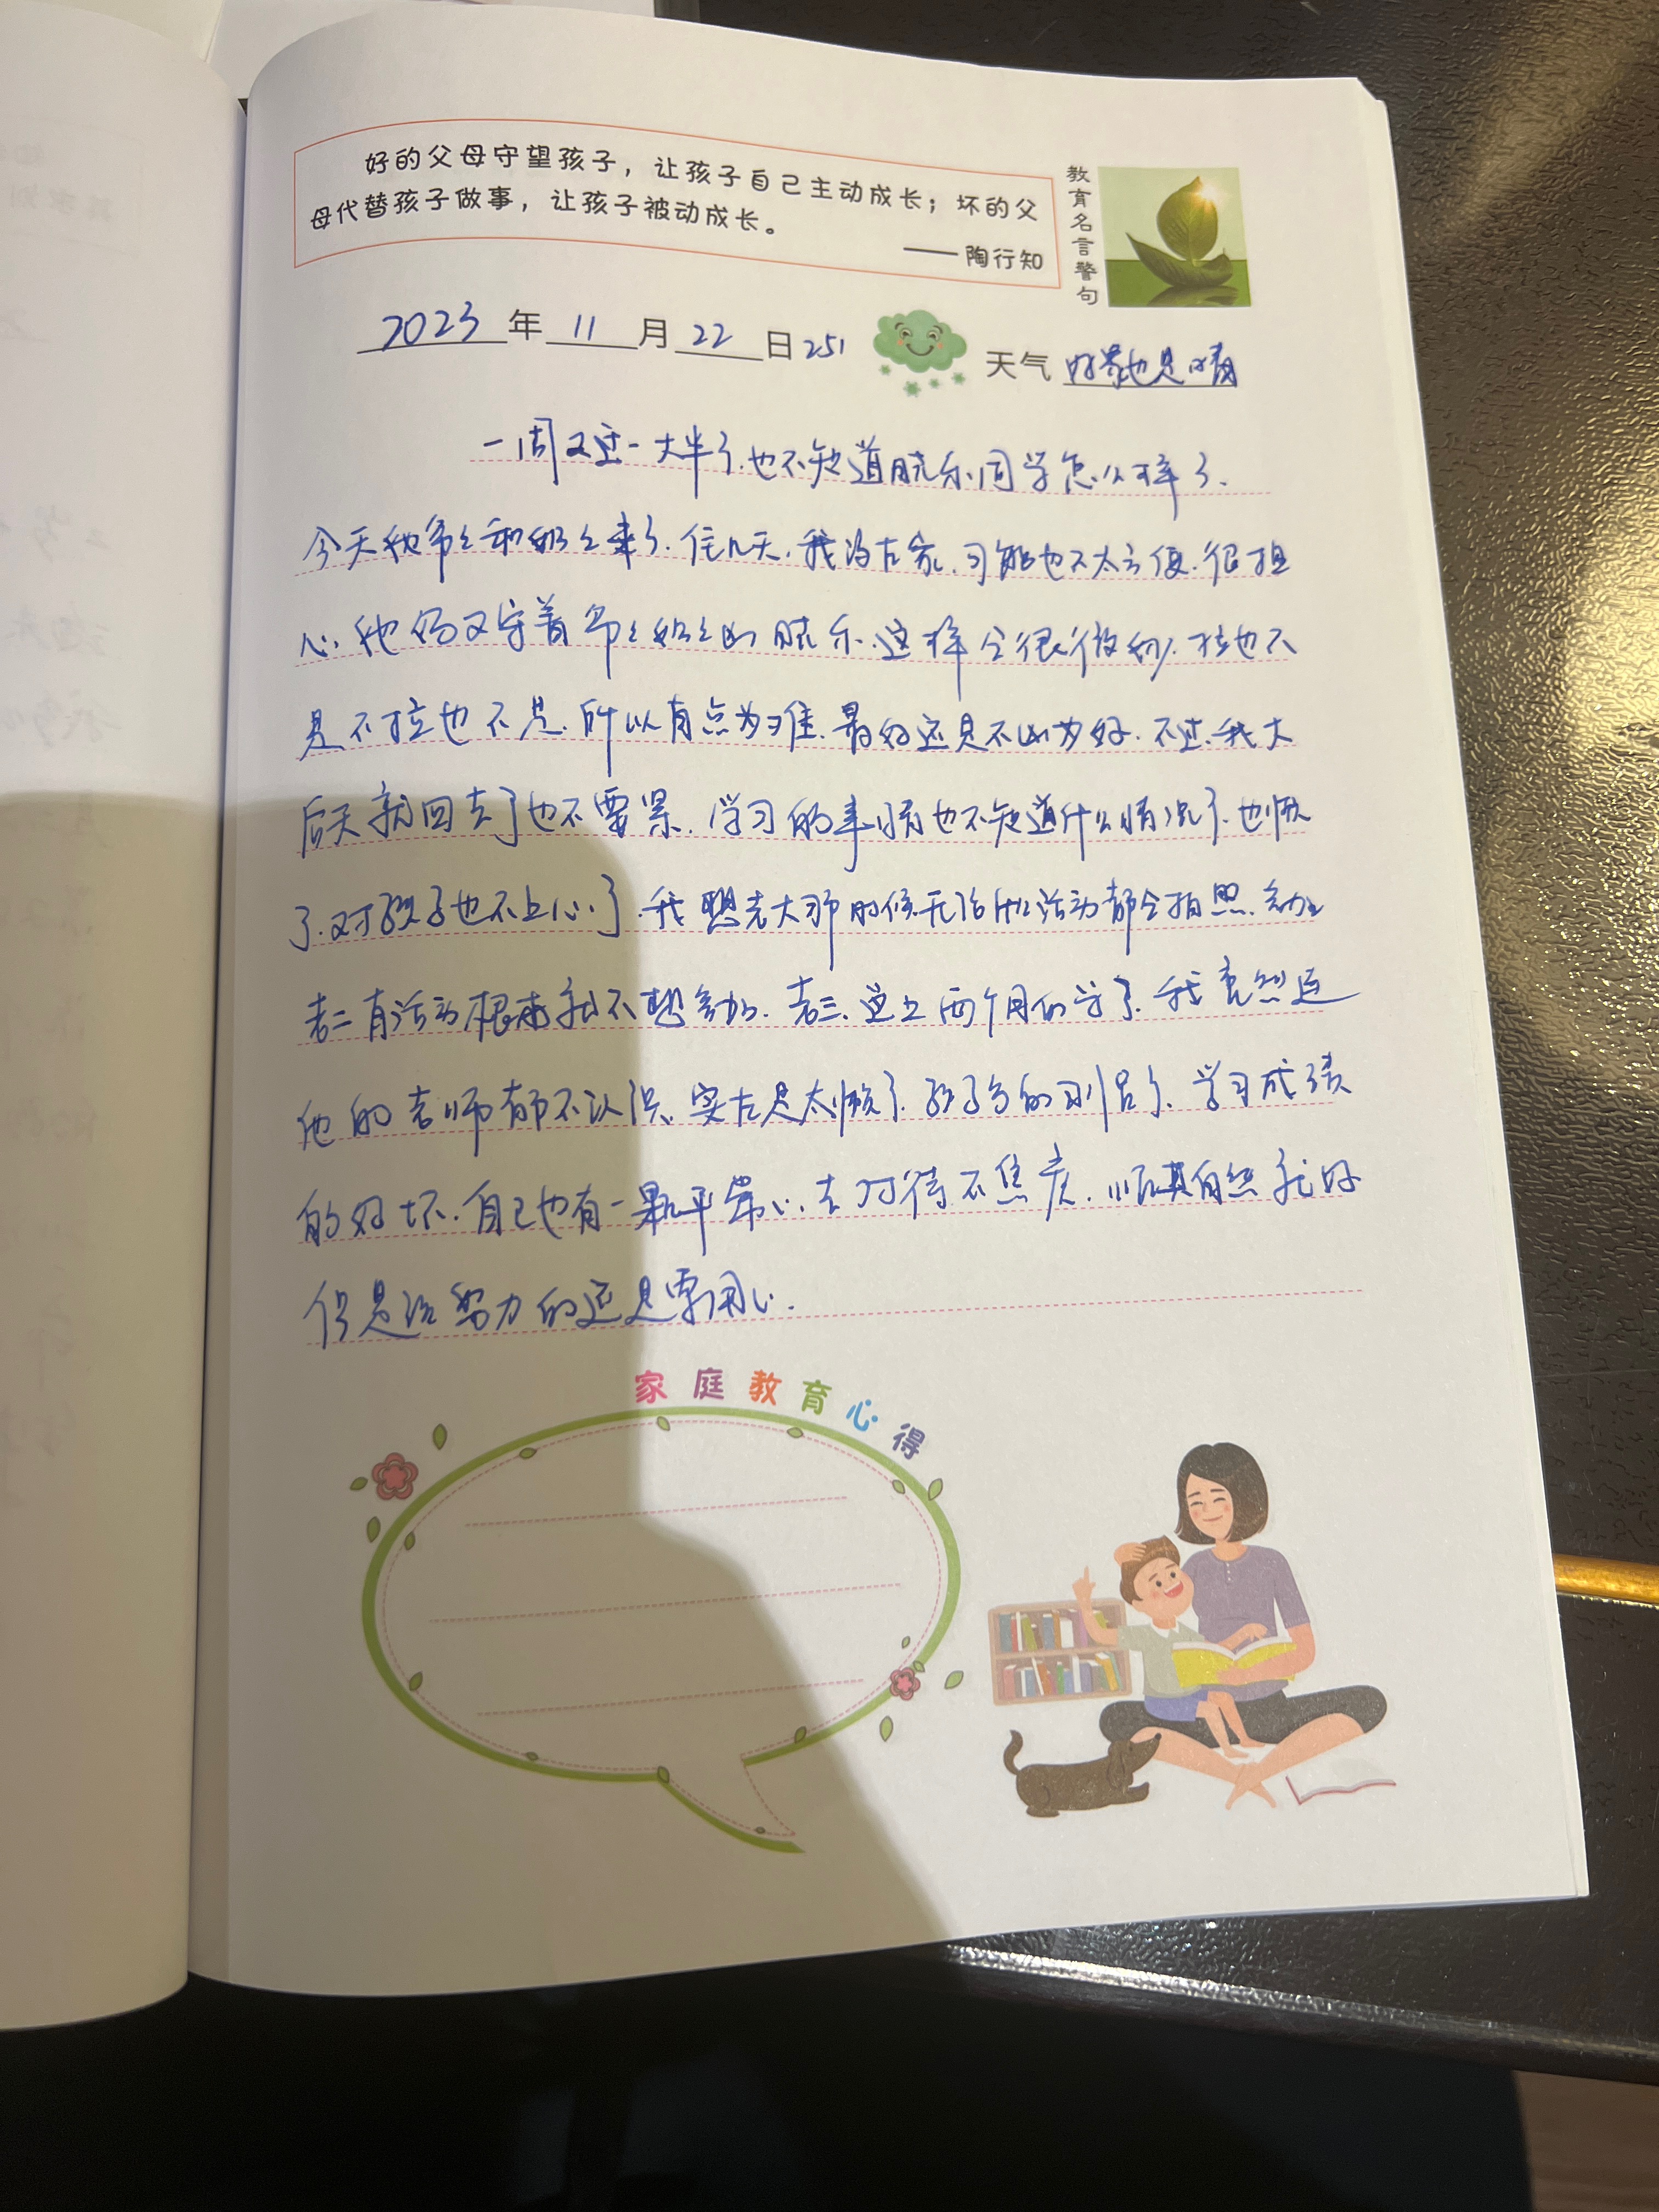 好的父母守望孩子，让孩子自己主动成长；坏的父
母代替孩子做事，让孩子被动成长。
——陶行知
教育名言警句
2023年11月22日251
天气 好像也是晴
一周又过一大半了.也不知道晓乐同学怎么样了.
今天他爷爷和奶奶来了.住几天.我没在家.可能也不太方便.很担
心.他妈又守着爷爷奶奶凶晓乐.这样会很微妙.拉也不
是不拉也不是.所以有点为难.最好还是不凶为好.不过.我大
后天就回去了也不要紧.学习的事情也不知道什么情况了.也懒
了.对孩子也不上心了.我想老大那时候无论什么活动都会拍照.参加
老二有活动根本就不想参加.老三.这上两个月的学了.我竟然连
他的老师都不认识.实在是太懒了.孩子多的到后了.学习成绩
的好坏.自己也有一颗平常心.去对待不焦虑.顺其自然就好
但是该努力的还是要用心.
家庭教育心得